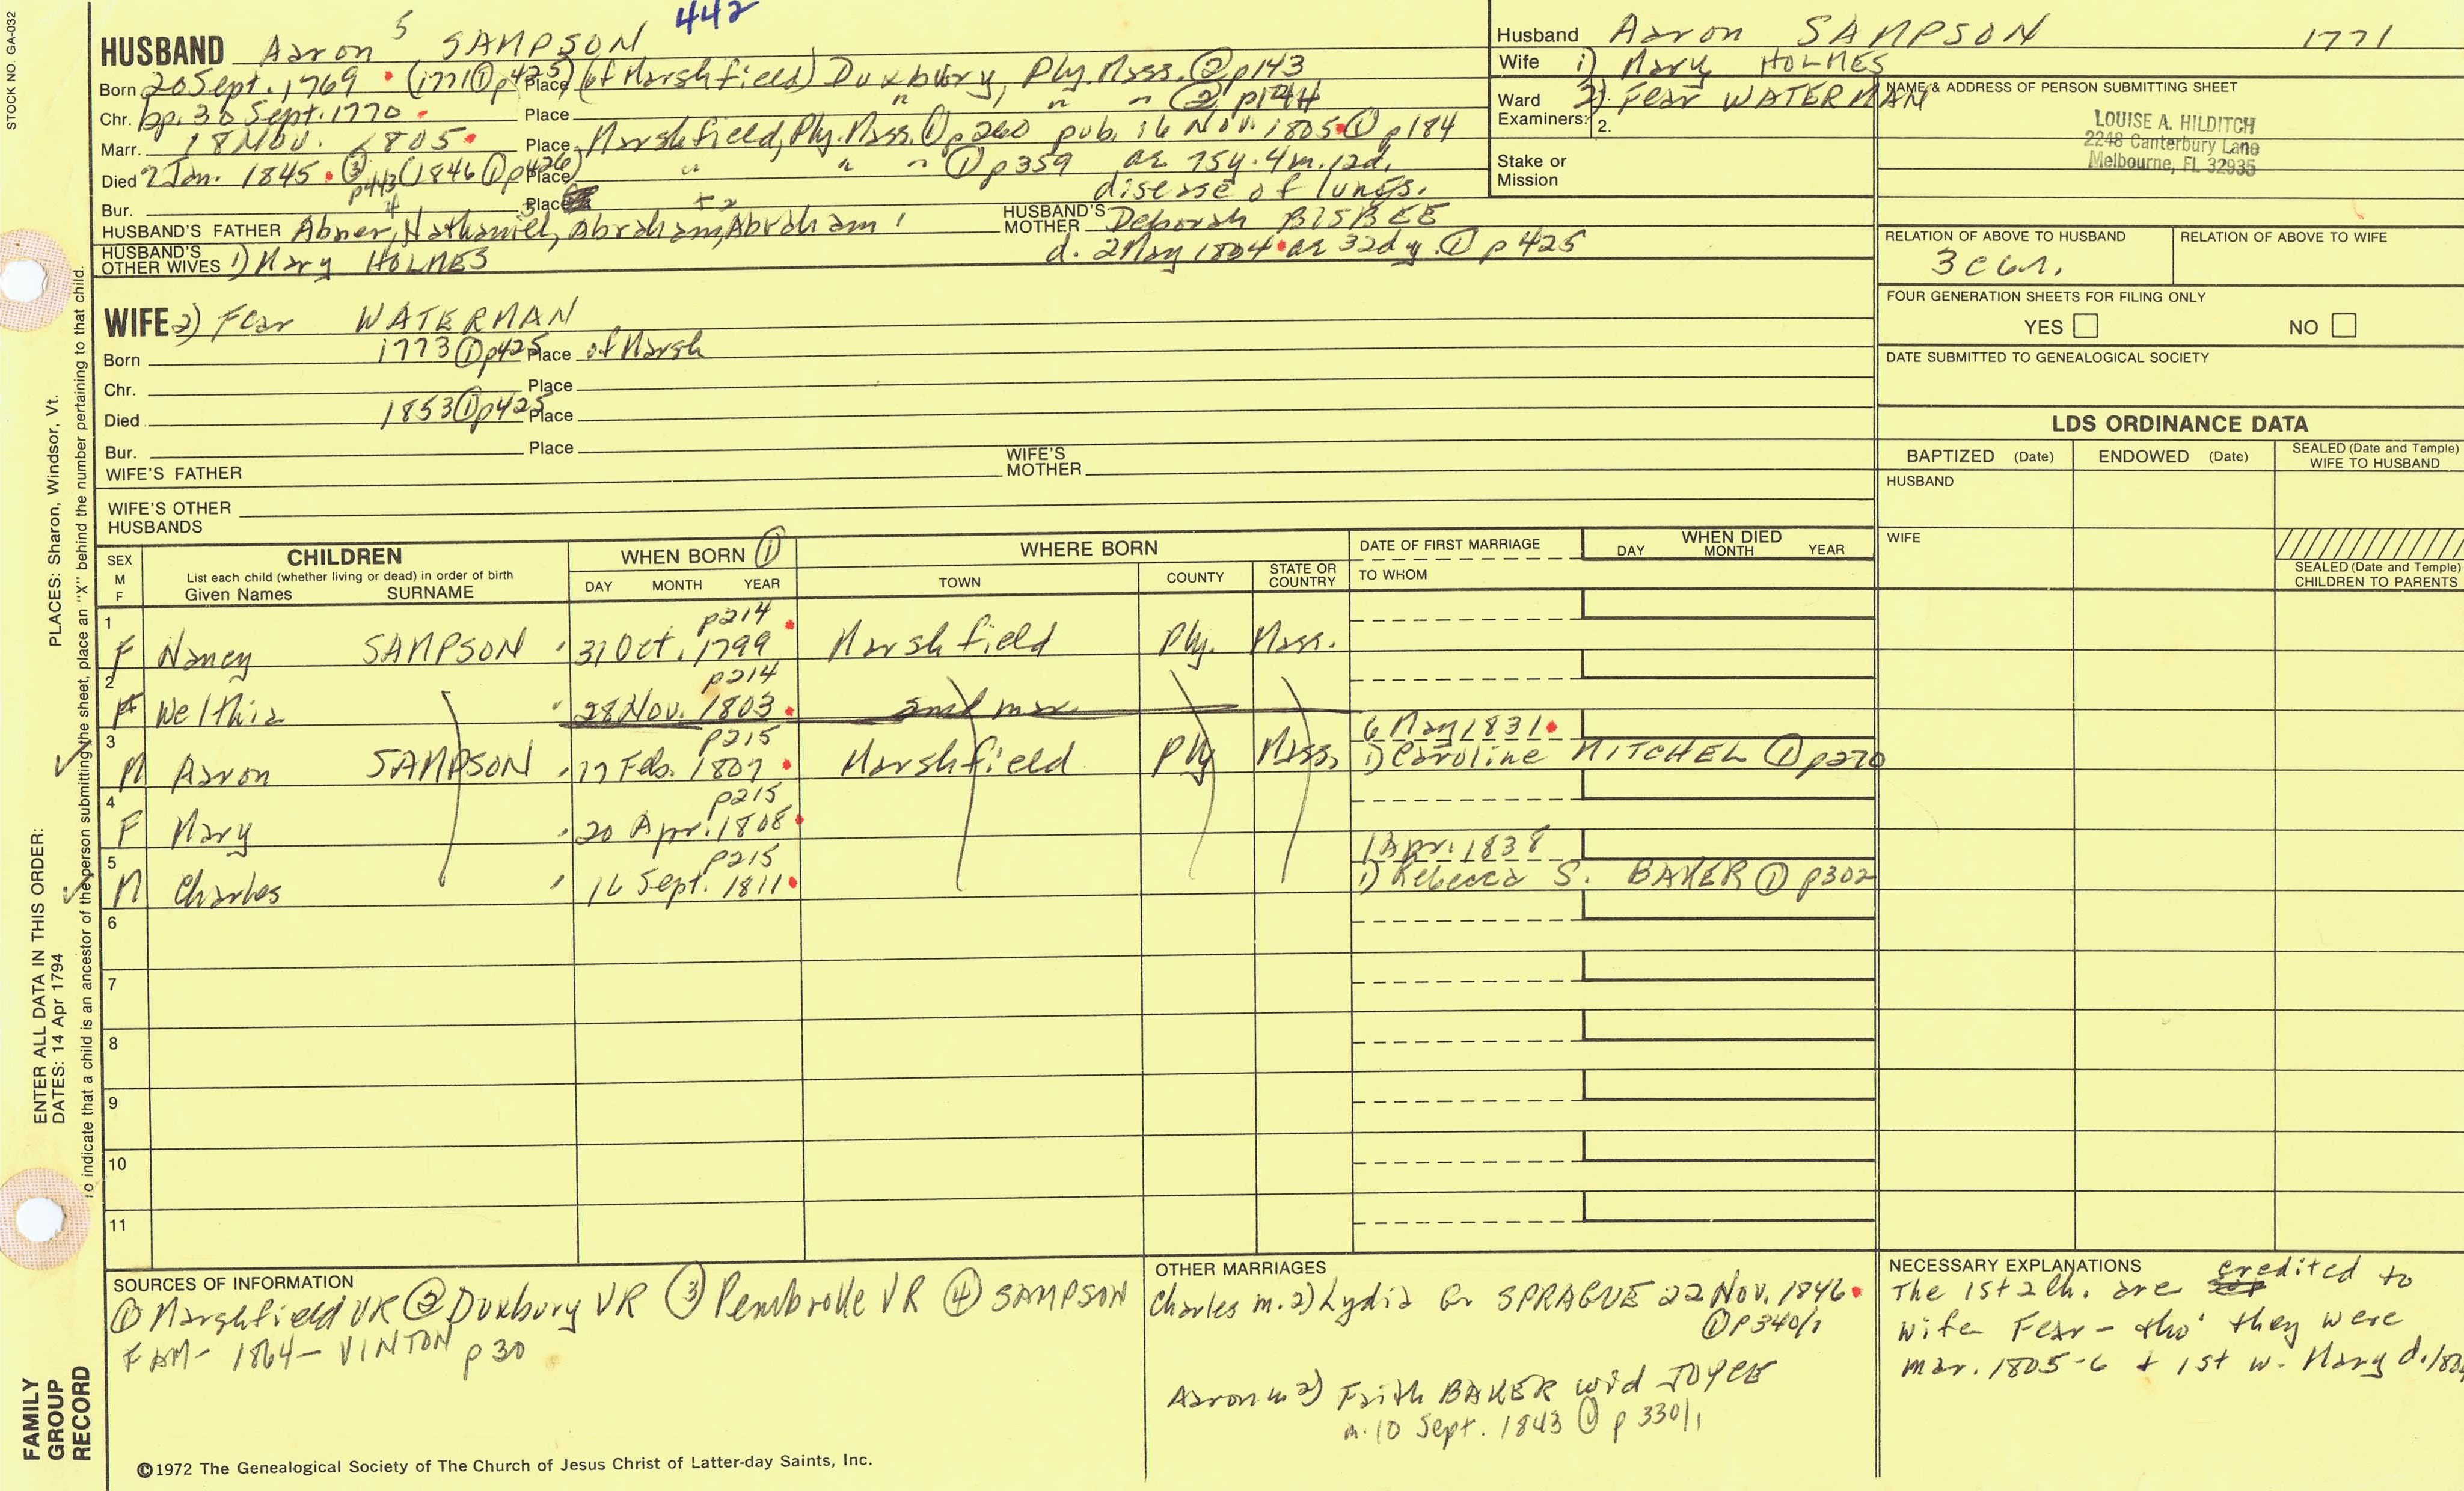 STOCK NO. GA-032
442
HUSBAND Aaron 5 SAMPSON
Born 20 Sept. 1769 (1771 ① p425) Place (of Marshfield) Duxbury, Ply. Mass. ② p143
Chr. bp. 30 Sept. 1770 Place " " " ② p144
Marr. 18 Nov. 1805 Place Marshfield, Ply. Mass. ① p260 pub. 16 Nov. 1805 ① p184
Died 2 Jan. 1845 ③ p443 (1846 ① p426) Place " " " ① p359 ae 75y. 4m. 12d.
disease of lungs.
Bur. Place
HUSBAND'S FATHER Abner, 4 Nathaniel, 3 Abraham, +2 Abraham 1 HUSBAND'S MOTHER Deborah BISBEE
HUSBAND'S OTHER WIVES 1) Mary HOLMES d. 2 May 1804 ae 32dy. ① p425
Husband Aaron SAMPSON 1771
Wife 1) Mary HOLMES
2). Fear WATERMAN
Ward
Examiners: 2.
Stake or
Mission
NAME & ADDRESS OF PERSON SUBMITTING SHEET
LOUISE A. HILDITCH
2248 Canterbury Lane
Melbourne, FL 32935
RELATION OF ABOVE TO HUSBAND RELATION OF ABOVE TO WIFE
FOUR GENERATION SHEETS FOR FILING ONLY
YES NO
DATE SUBMITTED TO GENEALOGICAL SOCIETY
WIFE 2) Fear WATERMAN
Born 1773 ① p425 Place of Marsh
Chr. Place
Died 1853 ① p425 Place
Bur. Place
WIFE'S FATHER WIFE'S MOTHER
WIFE'S OTHER
HUSBANDS
LDS ORDINANCE DATA
BAPTIZED (Date) ENDOWED (Date) SEALED (Date and Temple) WIFE TO HUSBAND
HUSBAND
WIFE
SEALED (Date and Temple)
CHILDREN TO PARENTS
SEX M F CHILDREN WHEN BORN ① WHERE BORN DATE OF FIRST MARRIAGE WHEN DIED
List each child (whether living or dead) in order of birth
Given Names SURNAME DAY MONTH YEAR TOWN COUNTY STATE OR COUNTRY TO WHOM DAY MONTH YEAR
p214
1 F Nancy SAMPSON 31 Oct. 1799 Marshfield Ply. Mass.
p214
2 F Welthia 28 Nov. 1803
p215 6 May 1831
3 M Aaron SAMPSON 17 Feb. 1807 Marshfield Ply Mass. 1) Caroline MITCHEL ① p270
p215
4 F Mary 20 Apr. 1808
p215 1 Apr. 1838
5 M Charles 16 Sept. 1811 1) Rebecca S. BAKER ① p302
6
7
8
9
10
11
SOURCES OF INFORMATION
① Marshfield VR ② Duxbury VR ③ Pembroke VR ④ SAMPSON
FAM- 1864- VINTON p30
OTHER MARRIAGES
Charles m. 2) Lydia G. SPRAGUE 22 Nov. 1846
① p340/1
Aaron m 2) Faith BAKER wid JOYCE
m. 10 Sept. 1843 ① p 330/1
NECESSARY EXPLANATIONS
The 1st 2 ch. are credited to
wife Fear- tho' they were
mar. 1805-6 + 1st w. Mary d.
©1972 The Genealogical Society of The Church of Jesus Christ of Latter-day Saints, Inc.
FAMILY
GROUP
RECORD
ENTER ALL DATA IN THIS ORDER:
DATES: 14 Apr 1794
PLACES: Sharon, Windsor, Vt.
To indicate that a child is an ancestor of the person submitting the sheet, place an "X" behind the number pertaining to that child.